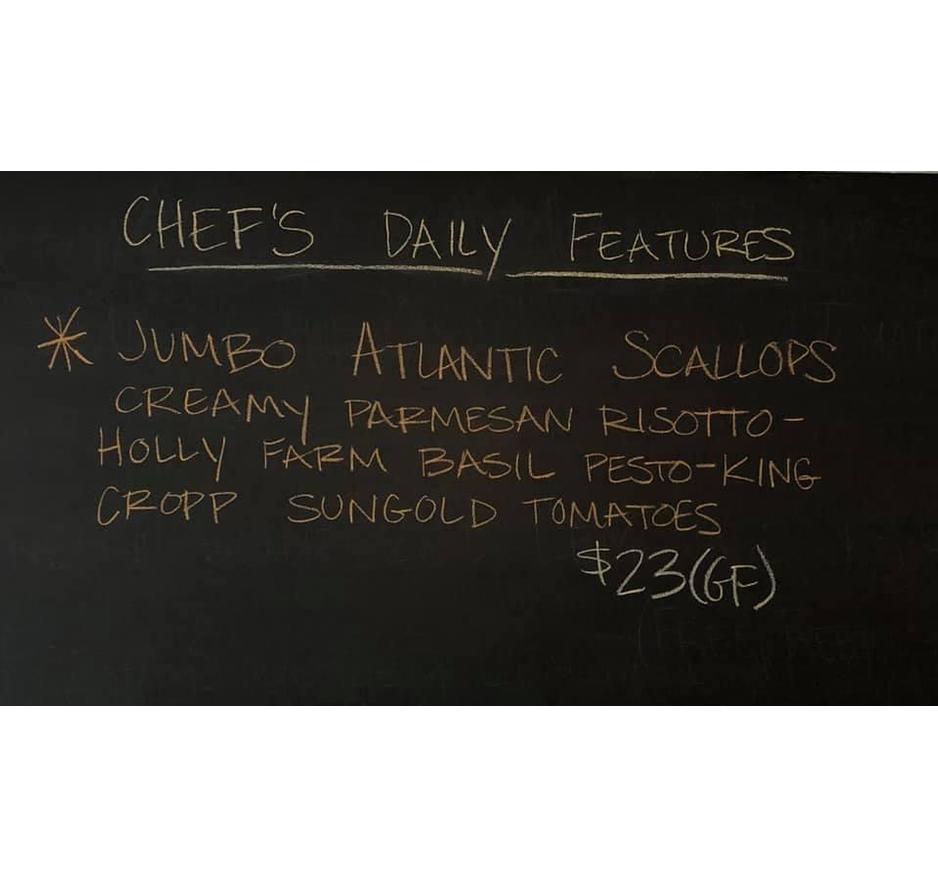 CHEF'S DAILY FEATURES
* JUMBO ATLANTIC SCALLOPS
CREAMY PARMESAN RISOTTO-
HOLLY FARM BASIL PESTO-KING
CROPP SUNGOLD TOMATOES
$23(GF)